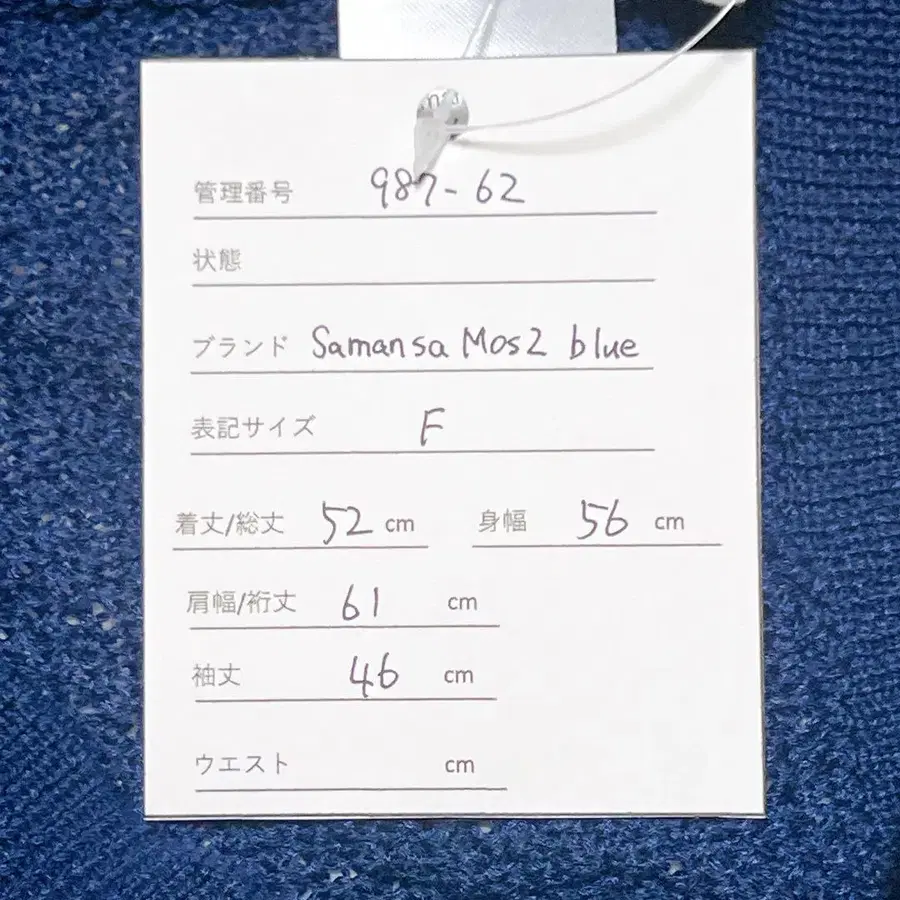 管理番号 987-62
状態
ブランド Samansa Mos2 blue
表記サイズ F
着丈/総丈 52 cm 身幅 56 cm
肩幅/裄丈 61 cm
袖丈 46 cm
ウエスト cm